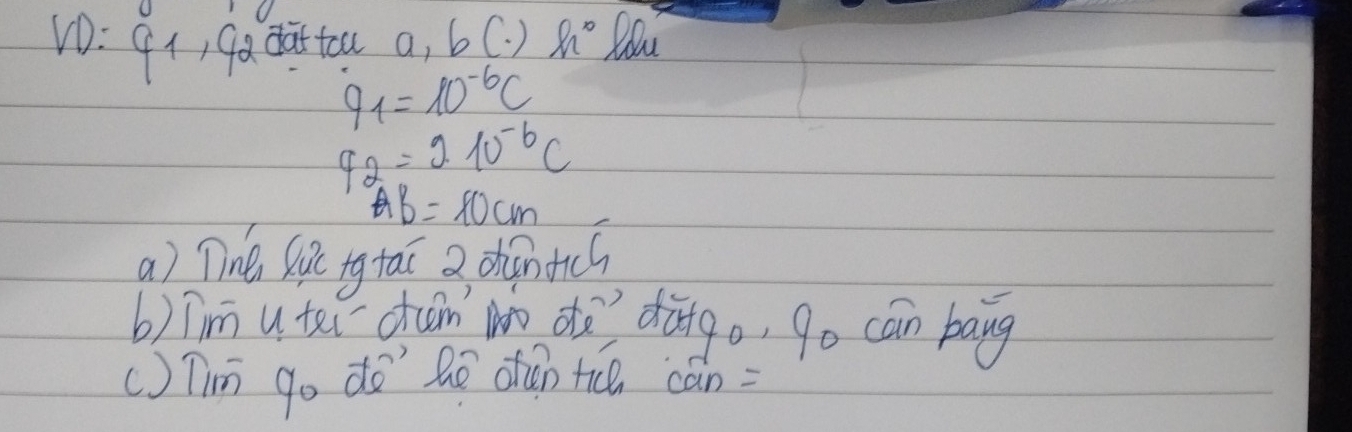 VD: q1, q2 đặt tại a, b (.) k° khí
q1 = 10⁻⁶C
q2 = 2.10⁻⁶C
AB = 10cm
a) Tính lực tg tác 2 điện tích
b) Tìm vị trí điểm để đặt q0, q0 cân bằng
c) Tìm q0 để hệ điện tích cân =